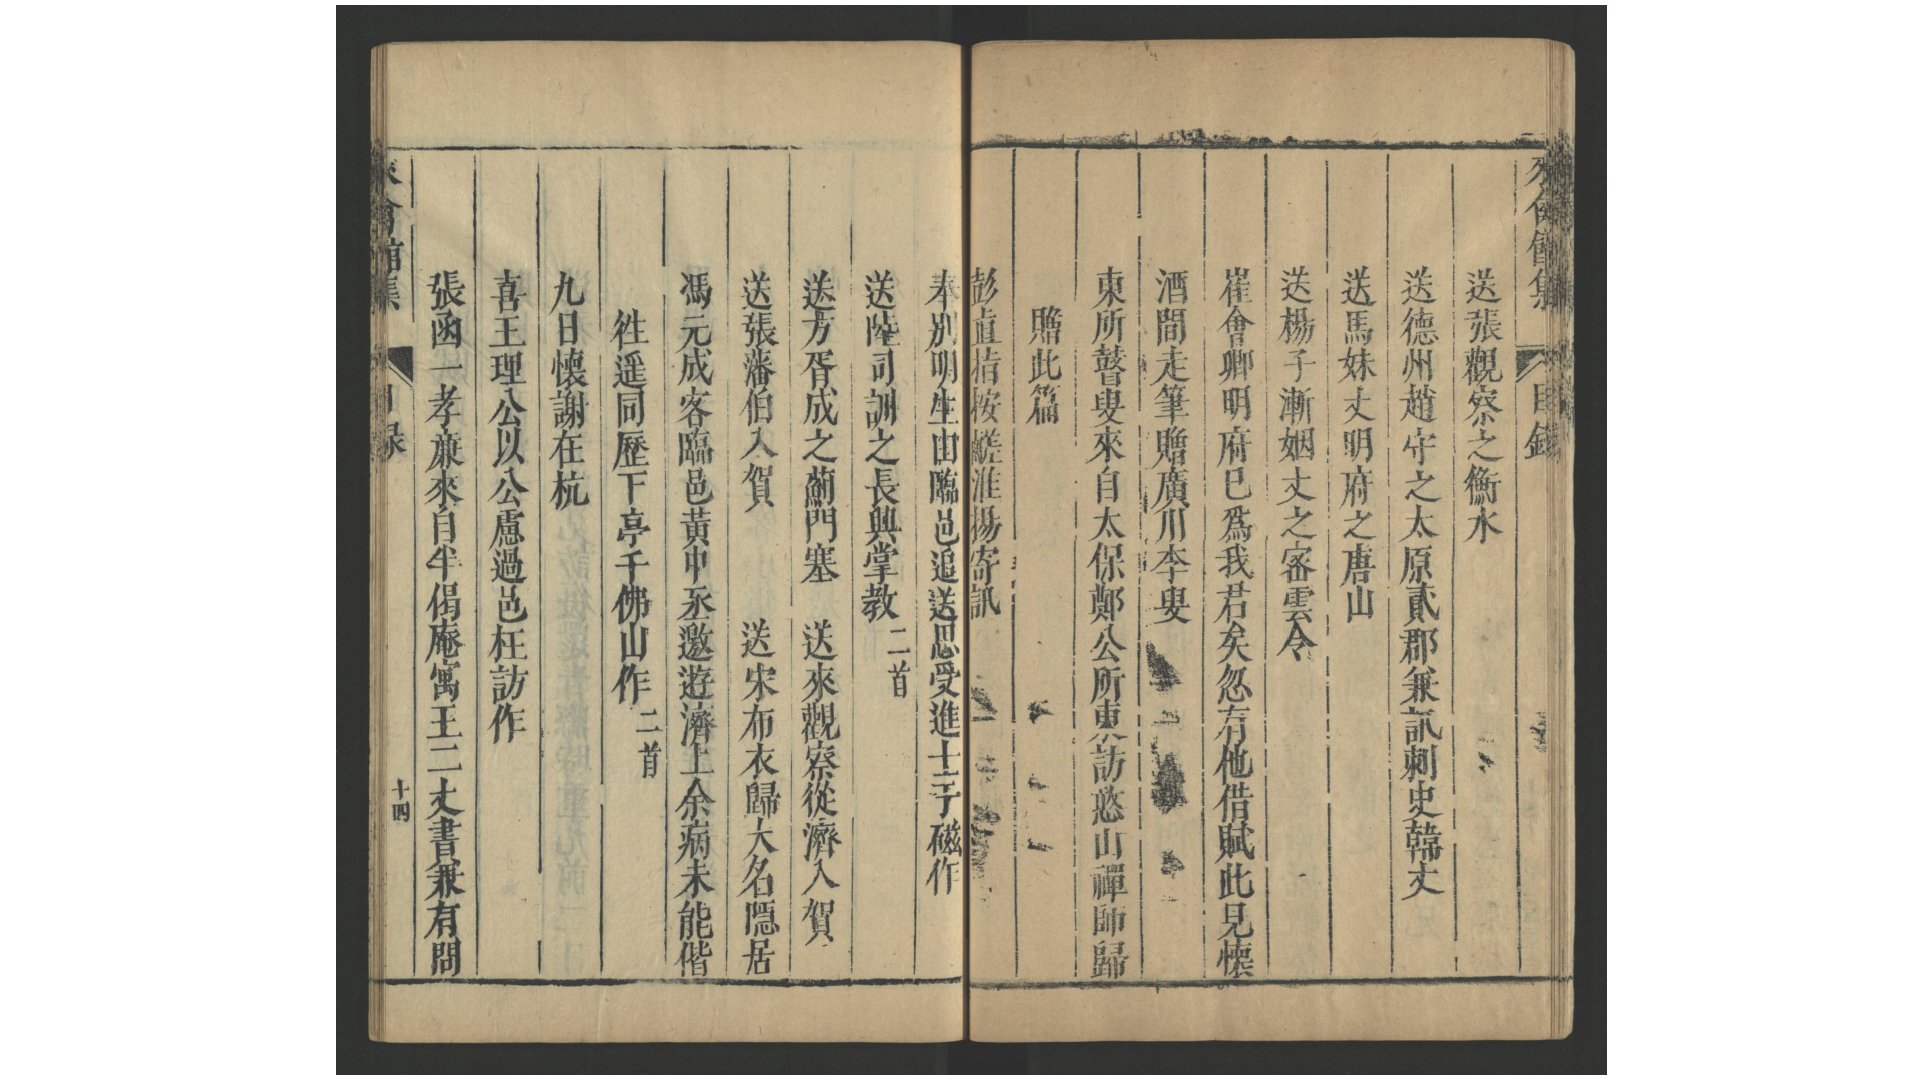 來禽館集　目錄
送張觀察之衡水
送德州趙守之太原貳郡兼訊刺史韓丈
送馬妹丈明府之唐山
送楊子漸姻丈之密雲令
崔會卿明府已爲我君矣忽有他借賦此見懷
酒間走筆贈廣川李叟
東所瞽叟來自太保鄭公所東訪憨山禪師歸
贈此篇
彭直指按鹺淮揚寄訊
奉別明生由臨邑追送思受進士于磁作
送陸司訓之長興掌教二首
送方胥成之薊門塞　送來觀察從濟入賀
送張藩伯入賀　送宋布衣歸大名隱居
馮元成客臨邑黃中丞邀遊濟上余病未能偕
徃遥同歷下亭千佛山作二首
九日懷謝在杭
喜王理公以公慮過邑枉訪作
張函一孝廉來自半偈庵寓王二丈書兼有問
來禽館集　目錄　十四